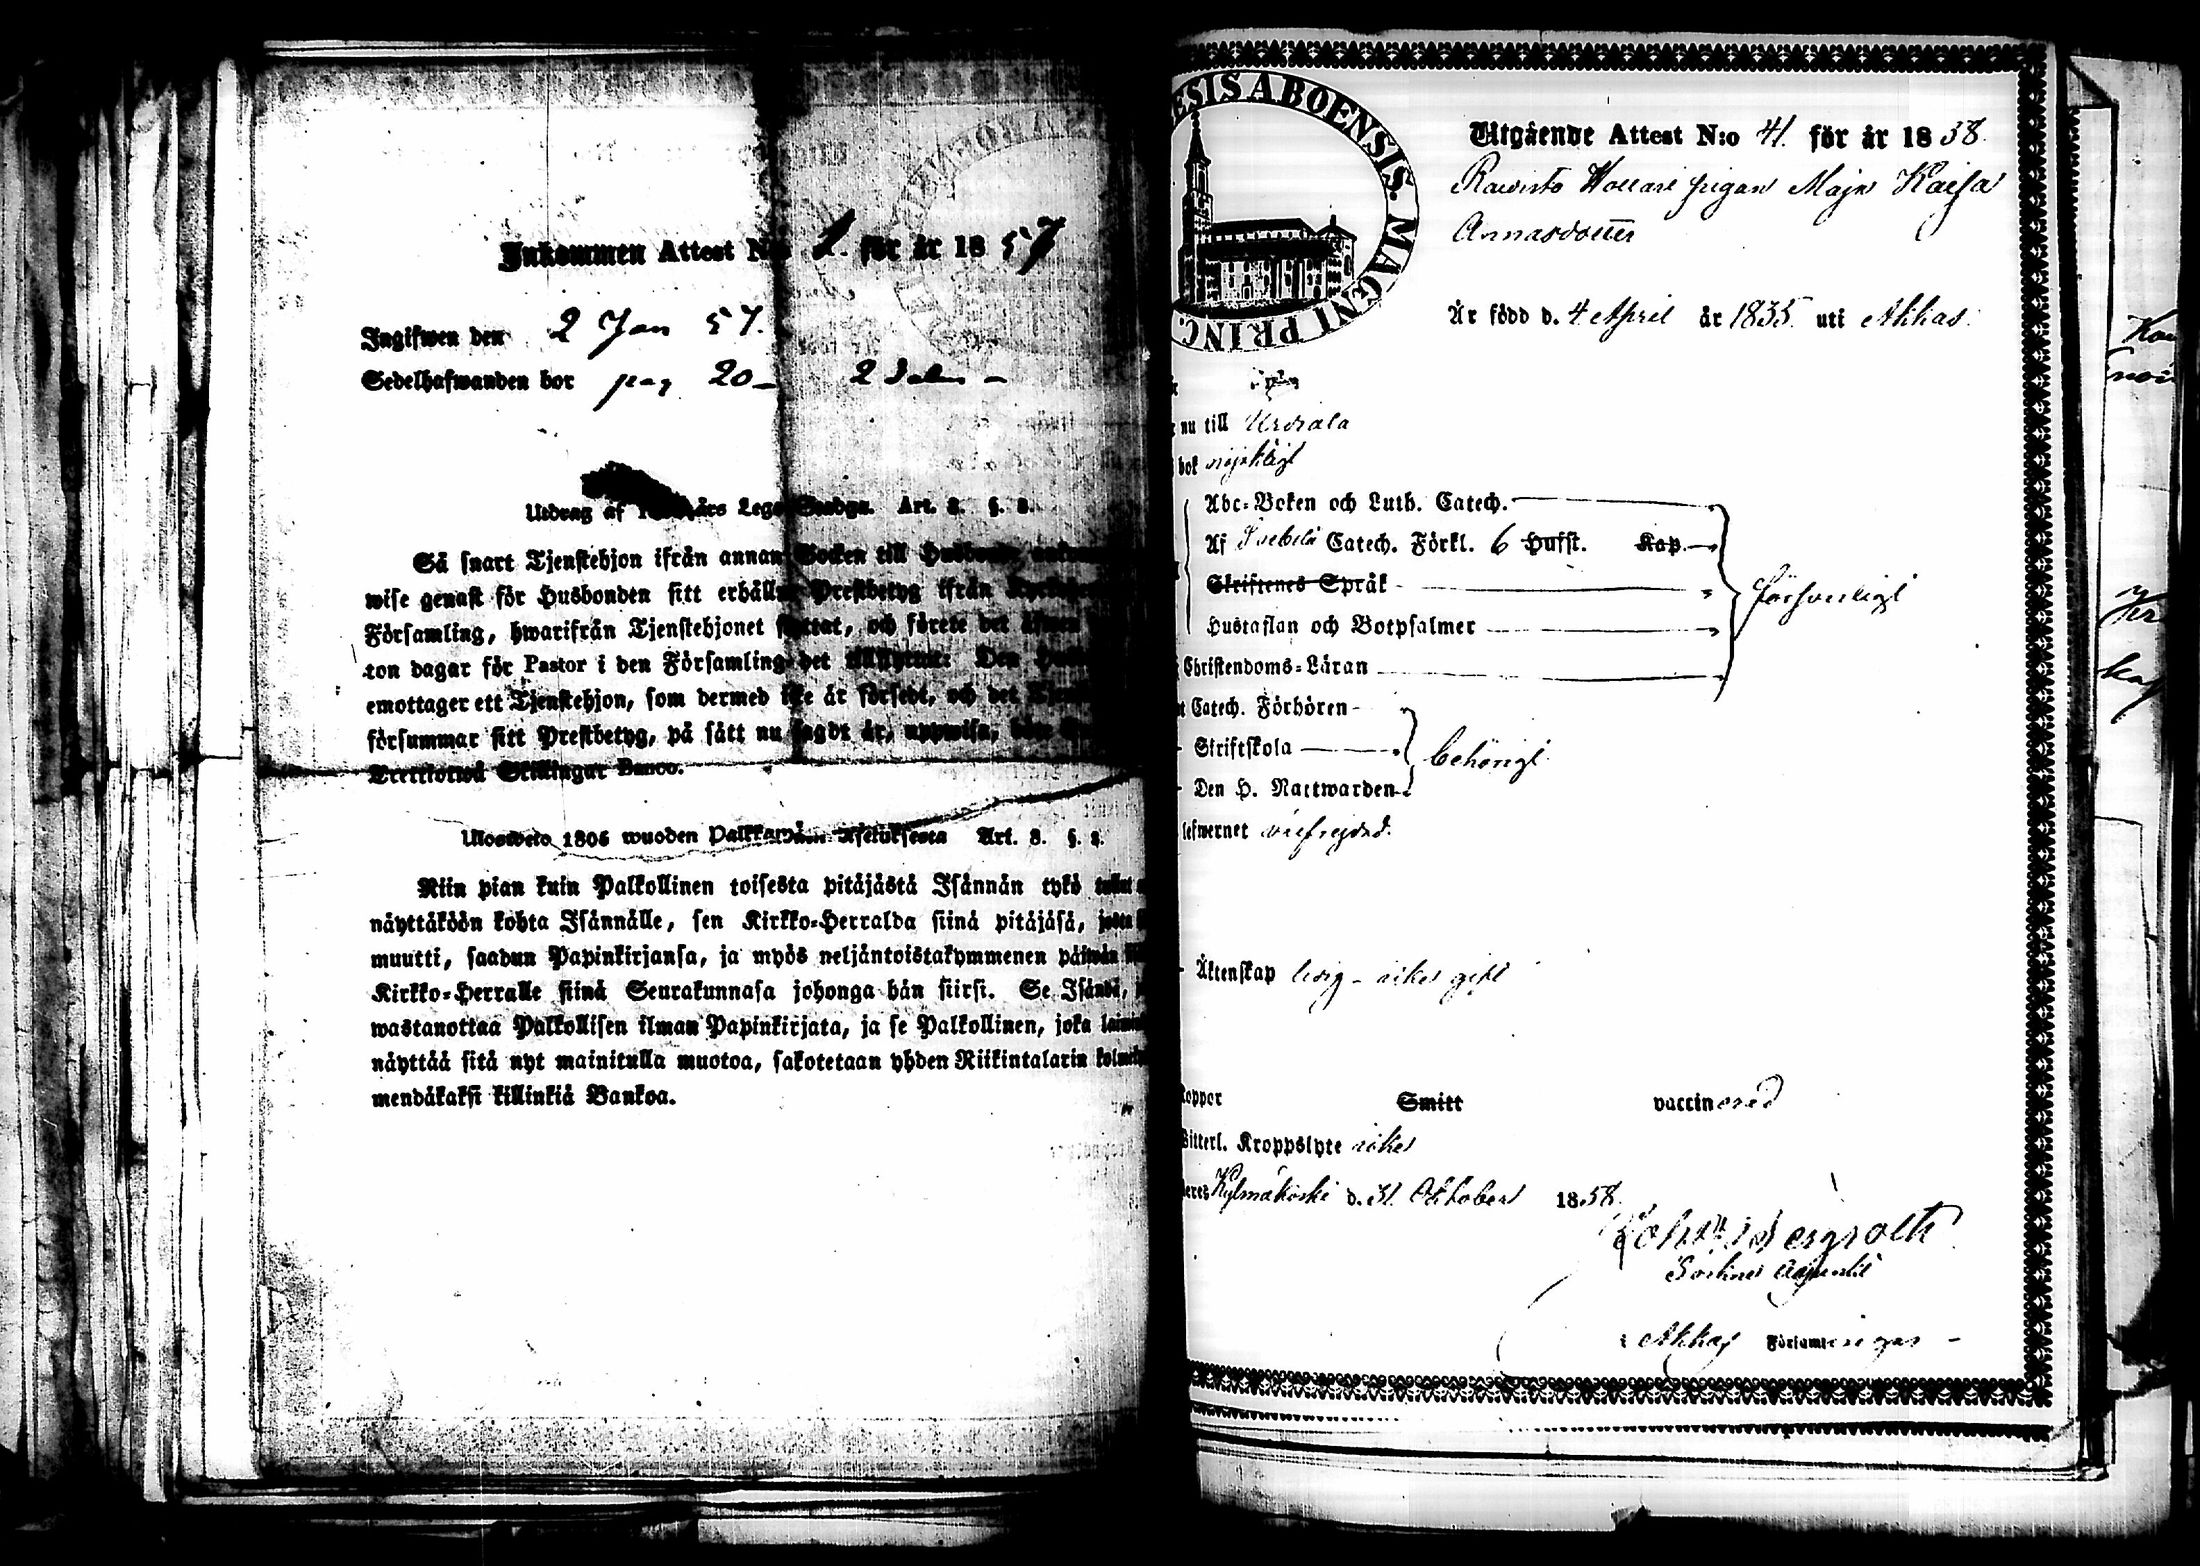 Inkommen Attest N:o 1. för år 1857
Ingifwen den 2 Jan 57.
Sedelhafwanden bor pag 20 –
Utdrag af års Lego Stadga. Art. 3. §. 2.
Så snart Tjenstehjon ifrån annan Socken till Husbonde
wise genast för Husbonden sitt erhållne Prestbetyg ifrån
Församling, hwarifrån Tjenstehjonet flyttat, och förete det
ton dagar för Pastor i den Församling det tillflyttat: Den
emottager ett Tjenstehjon, som dermed icke är försedt, och det
försummar sitt Prestbetyg, på sätt nu sagdt är, uppwisa,
Trettiotwå Skillingar Banco.
Ulosweto 1805 wuoden Palkkawäen Asetuksesta Art. 3. §. 2.
Niin pian kuin Palkollinen toisesta pitäjästä Isännän tykö tullut
näyttäköön kohta Isännälle, sen Kirkko-Herralda siinä pitäjäsä, josta
muutti, saadun Papinkirjansa, ja myös neljäntoistakymmenen päiwän
Kirkko-Herralle siinä Seurakunnasa johonga hän siirsi. Se Isändä,
wastanottaa Palkollisen ilman Papinkirjata, ja se Palkollinen, joka
näyttää sitä nyt mainitulla muotoa, sakotetaan yhden Riikintalarin
mendäkaksi killinkiä Bankoa.
ESIS ABOENSIS. MAGNI PRINC.
Utgående Attest N:o 41. för år 1858.
pigan Maja Kaisa
Annasdotter
Är född d. 4 April år 1835 uti Akkas.
nu till Urdiala
bok nöjaktigt
Abc-Boken och Luth. Catech.
Af Svebelii Catech. Förkl. 6 Hufst. Kap.
Skriftenes Språk
försvarligt
Hustaflan och Botpsalmer
Christendoms-Läran
Catech. Förhören
Skriftskola
behörigt
Den H. Nattwarden
lefwernet
Äktenskap ledig – icke gift
Koppor Smitt vaccinerad
Witterl. Kroppslyte icke
Kylmäkoski d. 31. Oktober 1858.
Bergroth
i Akkas Församlingar –